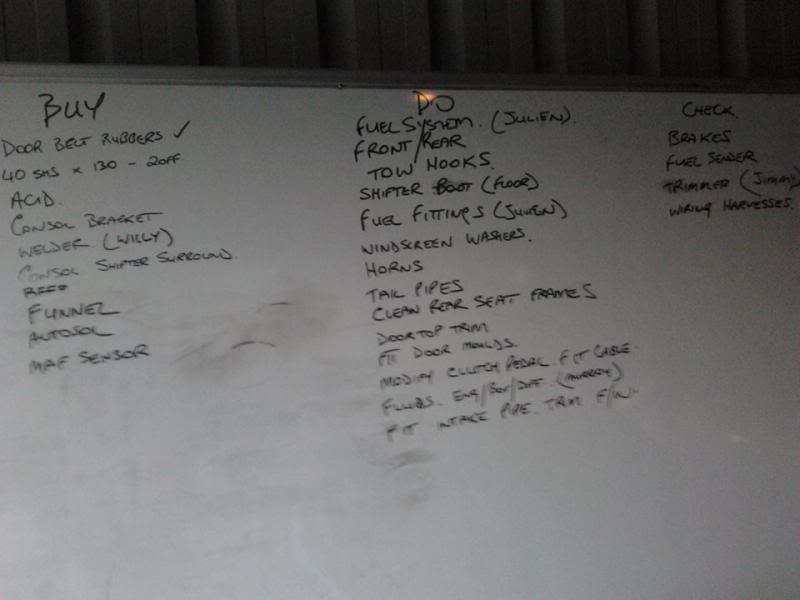 BUY
DOOR BELT RUBBERS ✓
40 SHS x 130 - 2OFF
ACID.
CONSOL BRACKET
WELDER (WILLY)
CONSOL SHIFTER SURROUND.
FUNNEL
AUTOSOL
MAF SENSOR
DO
FUEL SYSTEM. (JULIEN).
FRONT/REAR
TOW HOOKS.
SHIFTER BOOT (FLOOR)
FUEL FITTINGS (JULIEN)
WINDSCREEN WASHERS.
HORNS
TAIL PIPES
CLEAN REAR SEAT FRAMES
DOORTOP TRIM
FIT DOOR MOULDS.
MODIFY CLUTCH PEDAL. FIT CABLE.
FLUIDS. ENG/BOX/DIFF. (MURRAY)
FIT INTAKE PIPE. TRIM
CHECK.
BRAKES
FUEL SENDER
TRIMMER (JIMMY)
WIRING HARNESSES.